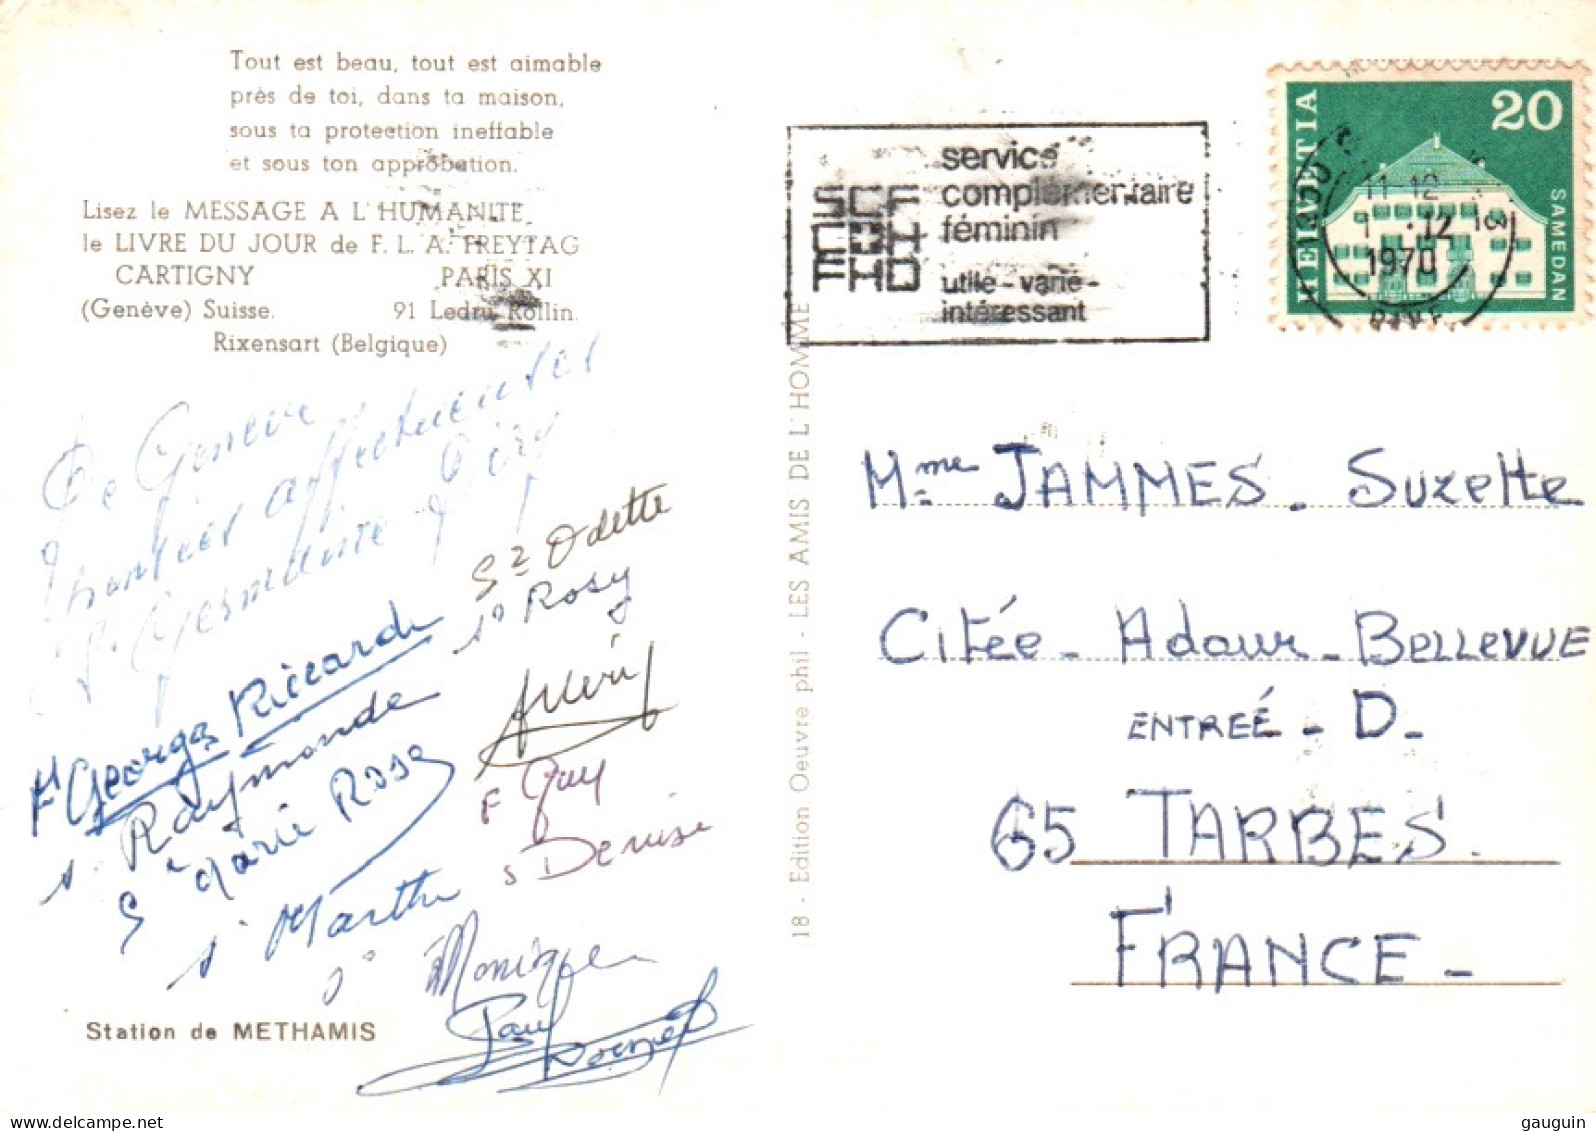 Tout est beau, tout est aimable
près de toi, dans ta maison,
sous ta protection ineffable
et sous ton approbation.
Lisez le MESSAGE A L'HUMANITE
le LIVRE DU JOUR de F. L. A. FREYTAG
CARTIGNY PARIS XI
(Genève) Suisse. 91 Ledru Rollin.
Rixensart (Belgique)
De Genève
affectueuses
Germaine
Sz Odette
so Rosy
Fr Georges Riccardi
s. Raymonde
S Marie Rose
F Guy
s Denise
s. Marthe
so Monique
Paul
Station de METHAMIS
18 - Edition Oeuvre phil - LES AMIS DE L'HOMME
SCF
FHD
service
complémentaire
féminin
utile - varié -
intéressant
HELVETIA
20
SAMEDAN
11-12
12
1970
RIVE
Mme JAMMES. Suzette
Citée - Adour - BELLEVUE
ENTREÉ - D -
65 TARBES.
FRANCE -
gauguin © delcampe.net